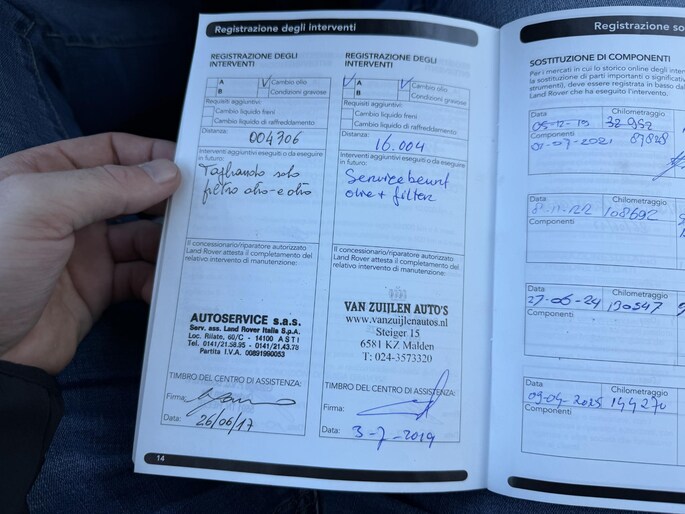 Registrazione degli interventi
REGISTRAZIONE DEGLI
INTERVENTI
A
Cambio olio
B
Condizioni gravose
Requisiti aggiuntivi:
Cambio liquido freni
Cambio liquido di raffreddamento
Distanza:
004306
Interventi aggiuntivi eseguiti o da eseguire
in futuro:
Tagliando solo
filtro olio e olio
Il concessionario/riparatore autorizzato
Land Rover attesta il completamento del
relativo intervento di manutenzione:
AUTOSERVICE s.a.s.
Serv. ass. Land Rover Italia S.p.A.
Loc. Rilate, 60/C - 14100 ASTI
Tel. 0141/21.58.95 - 0141/21.43.78
Partita I.V.A. 00891990053
TIMBRO DEL CENTRO DI ASSISTENZA:
Firma:
Data: 26/06/17
14
REGISTRAZIONE DEGLI
INTERVENTI
A
Cambio olio
B
Condizioni gravose
Requisiti aggiuntivi:
Cambio liquido freni
Cambio liquido di raffreddamento
Distanza:
16.004
Interventi aggiuntivi eseguiti o da eseguire
in futuro:
Servicebeurt
olie + filter
Il concessionario/riparatore autorizzato
Land Rover attesta il completamento del
relativo intervento di manutenzione:
VAN ZUIJLEN AUTO'S
www.vanzuijlenautos.nl
Steiger 15
6581 KZ Malden
T: 024-3573320
TIMBRO DEL CENTRO DI ASSISTENZA:
Firma:
Data: 3-7-2019
Registrazione so
SOSTITUZIONE DI COMPONENTI
Per i mercati in cui lo storico online degli inte
la sostituzione di parti importanti o significativ
strumenti), deve essere registrata in basso dal
Land Rover che ha eseguito l'intervento.
Data
Chilometraggio
05-12-19
32-952
Componenti
01-07-2021 87828
Data
Chilometraggio
108692
Componenti
Data
Chilometraggio
27-06-24
130547
Componenti
Data
Chilometraggio
09-04-2025
144270
Componenti